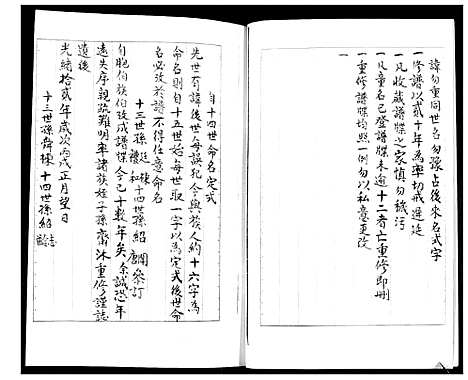 諱勿重同世名勿豫占後來名式字
一修譜以貳十年為率切戒遲延
一凡收藏譜牒之家慎勿穢污
一凡童名已登譜牒未逾十二者亡重修即刪
一重修譜牒均照一例勿以私意更改
一
自十四世命名定式
先世有諱後世毋誤犯今與族人約十六字為
命名則自十五世始每世取一字以為定式後世命
名必改於譜不得任意命名
十三世孫 廷棟 禮和 十四世孫紹 閶 唐 參訂
自胞伯族伯改成譜牒今已十數年矣余誠恐年
遠失序親疏難明率諸族姪子孫齋沐重修謹誌
遺後
光緒拾貳年歲次丙戌正月望日
十三世孫舜棟 十四世孫紹 志